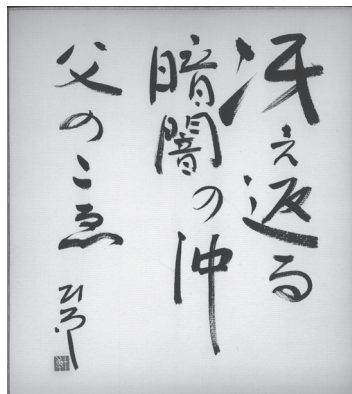 冴え返る
暗闇の沖
父のこゑ